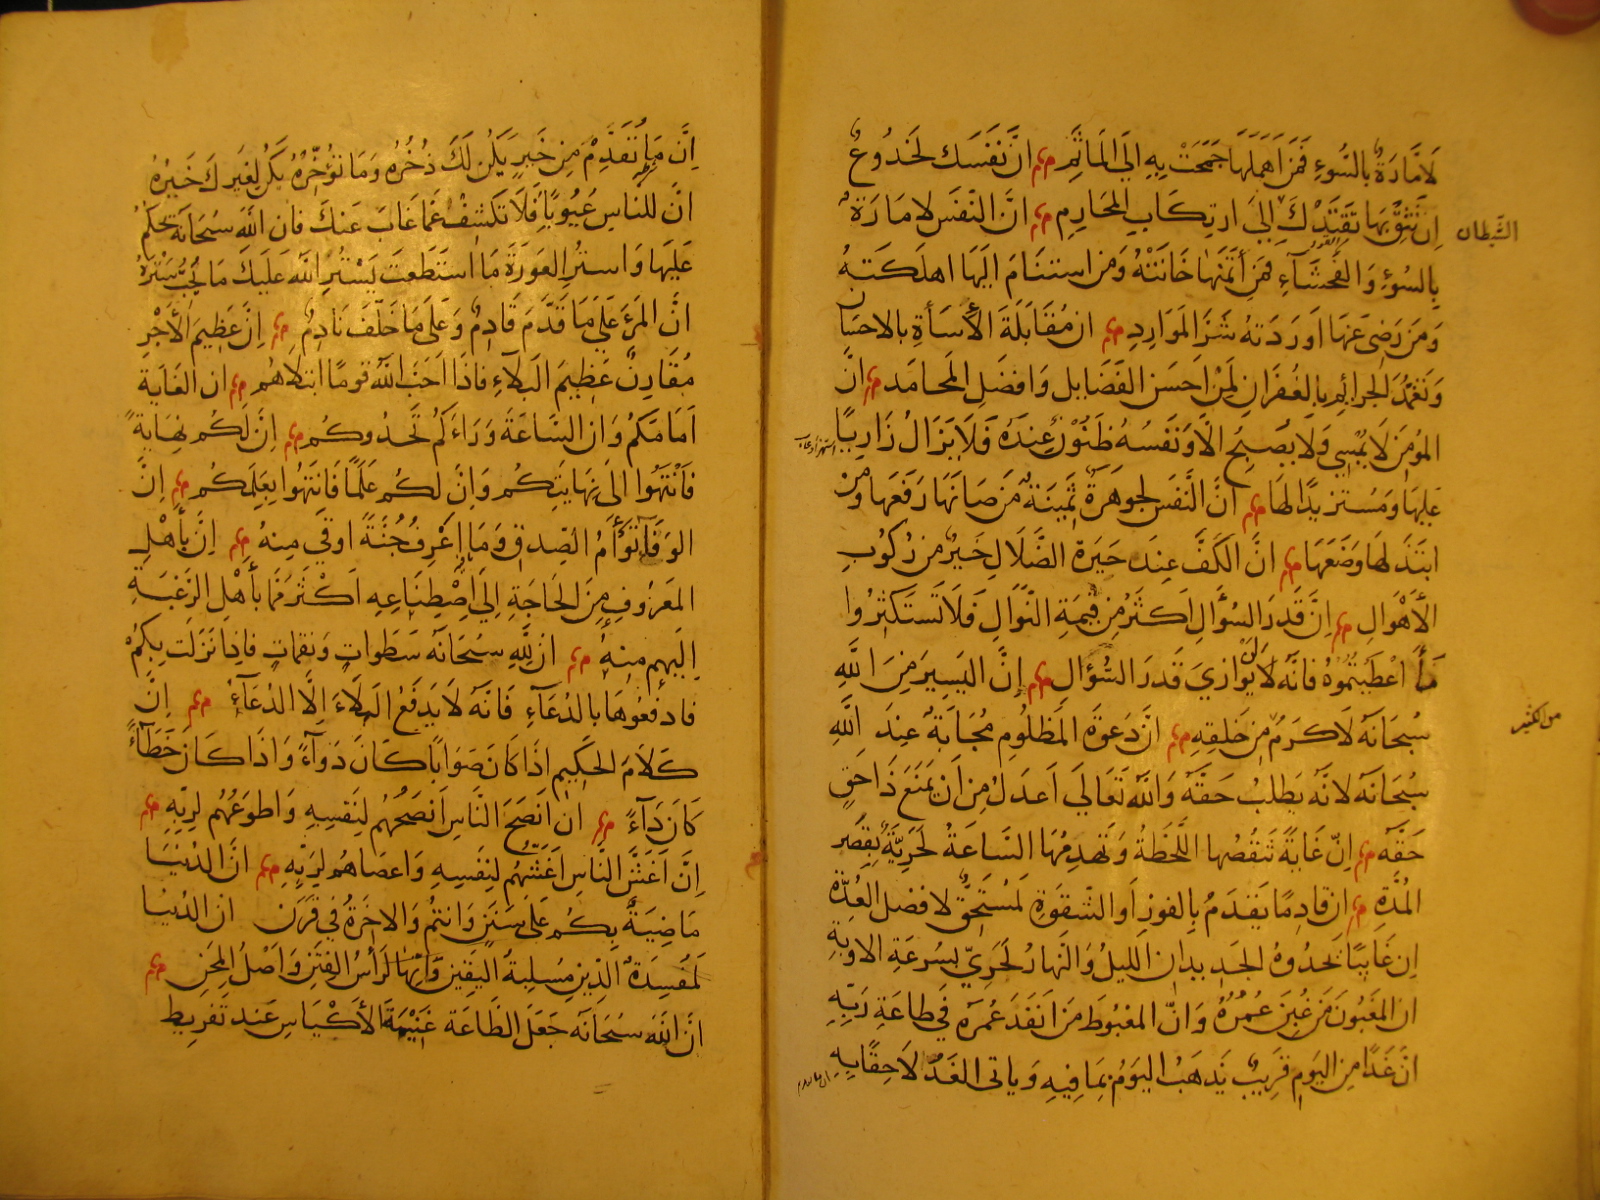 لَأمّارَةٌ بالسُوءِ فَمَن اَهمَلَها جَمَحَتْ بِهِ اِلَى المَآثِمِ انَّ نَفسَك لَخَدُوعٌ
اِن تَثِق بِهَا يَقتَدْكَ الشَّيطان اِلى ارتِكَابِ المحَارِمِ انَّ النّفَس لامَارَةٌ
بِالسُوءِ وَالفَحشَآءِ فَمَنِ أتَمَنَها خَانَتْهُ وَمَن استنَامَ الَيهَا اهلَكَتهُ
وَمَن رَضِىَ عَنهَا اَورَدَتهُ شَرَّ المَوَارِدِ ان مُقَابَلَةَ الأسَأةِ بالاحسَانِ
وَتَغَمُّدَ الجرائِمِ بالغُفرَانِ لَمِنْ اَحسَنِ الفَضَايل وَافضَلِ المَحامَد انَّ
المُومَن لَا يُمْسِي وَلَا يُصبِحُ الّا وَنَفسُهُ ظَنُونٌ عِندَهُ فَلَا يَزَالُ زَارِيًا
عَليهَا وَمُستَزِيدًا لهَا انَّ النَّفسَ لَجوهَرَةٌ ثَمِينَةٌ مَن صَانَهَا رَفَعَها وَمَنْ
ابتَذَلَها وَضَعَهَا انَّ الكَفَّ عِندَ حَيَرَةِ الضَّلَالِ خَيرٌ مِن رُكُوبِ
الأَهْوَالِ اِنَّ قَدرَ السُؤَالِ اَكثَرُ مِن قِيمَةِ النّوَالِ فَلَا تَستَكثِرُوا
مَا اعْطَيتُمُوهُ فَانّه لَن يُوازيَ قَدرَ السُّؤالِ اِنَّ اليَسِيرَ مِنَ اللَّهِ
سُبحَانَهُ لَاكرَمُ مِن الكثير مِن خَلقِهِ انَّ دَعوَةَ المَظلُومِ مُجَابَةٌ عِندَ اللَّهِ
سُبحَانَهُ لانّه يَطلبُ حَقّهُ وَاللّه تَعَالَى اَعدَلُ مِن اَن يَمنَعَ ذَا حَقٍّ
حَقّه اِنّ غَايَةً تَنقُصُها اللَّحْظَةُ وَتَهدِمُهَا السَّاعَةُ لَحَرِيَّةٌ بِقِصَرِ
المُدَّةِ اِنّ قَادِمًا يَقدَمُ بِالفَوزِ اَوِ الشّقوَةِ لَمُستَحِقٌّ لافضَلِ العُدَّةِ
اِن غَايبًا يَحدُوهُ الجَديدانِ الليلُ وَالنّهارُ لَحَرِيٌّ بسُرعَةِ الاوبَةِ
ان المَغبُونَ مَن غُبِنَ عُمُرُهُ وَانّ المغبُوطَ مَن اَنفَدَ عُمرَه فِي طاعَةِ رَبِّهِ
انّ غَدًا مِن اليَومِ قَرِيبٌ يَذهَبُ اليَومُ بِمَا فِيهِ وَيَاتى الغَدُ لَاحِقًا بِهِ
اِنَّ مَا تُقَدِّمْ مِن خَيرٍ يَكُن لَكَ ذُخرُهُ وَمَا تؤَخِّرْهُ يَكُنْ لِغَيرِكَ خَيرُهُ
انَّ للنّاسِ عُيُوبًا فَلَا تَكشِفْ مَا غَابَ عَنكَ فَان اللّهَ سُبحَانَهُ يَحكُمُ
عَلَيهَا وَاستُرِ العَورَةَ مَا استَطَعتَ يَستُرِ اللّهُ عَلَيكَ مَا تُحِبُّ سَترَهُ
انَّ المَرءَ عَلَى مَا قَدَّمَ قَادِمٌ وَعَلَى مَا خَلّفَ نَادِمٌ اِنَّ عَظِيمَ الأجْرِ
مُقَارِنٌ عَظِيمَ البَلَاءِ فَاذَا اَحَبّ اللّهُ قَومًا ابتَلَاهُم ان الغَايَة
اَمَامَكُم وَان السَّاعَةَ وَرَاءَكُم تَحدُوكُم اِنَّ لَكُم نِهَايَةً
فَانْتَهُوا اِلَى نِهَايَتِكُم وَاِنّ لكُم عَلَمًا فَانتَهُوا بِعَلَمِكُم اِنَّ
الوَفَاءَ تَوأَمُ الصّدقِ وَمَا اَعْرِفُ جُنَّةً اوقَى مِنهُ اِنَّ بِأهْلِ
المَعرُوفِ مِنَ الحَاجَةِ اِلَى اصْطِنَاعِهِ اَكْثَرَ مِمَّا بأَهْلِ الرَغبَةِ
اِلَيهِم مِنهُ ان لِلَّهِ سُبحَانَهُ سَطَواتٍ وَنَقِمَاتٍ فَاذَا نَزَلَت بِكُمْ
فَادفَعُوهَا بالدُعَآءِ فَانّه لَا يَدفَعُ البَلَاءَ الّا الدُعَآءُ اِنَّ
كَلَامَ الحَكِيمِ اذَا كَانَ صَوَابًا كَانَ دَوَآءً وَاذَا كَانَ خَطَآءً
كَانَ دَآءً ان اَنصَحَ النَّاسِ اَنصَحُهُم لِنَفسِهِ وَاطوَعُهُم لِرَبِّهِ
اِنَّ اَغَشَّ النَّاسِ اَغَشُّهُم لِنَفسِهِ وَاعصَاهُم لِرَبِّهِ انَّ الدُنيَا
مَاضِيَةٌ بِكُم عَلَى سَنَنٍ وَانتُم وَالاخِرَةُ فِي قَرَنٍ ان الدُنيَا
لَمَفسَدَةُ الدِينِ مُسلِبَةُ اليَقِينِ وَاِنّهَا لَرَأسُ الفِتَنِ وَاَصلُ المِحَنِ
انَّ اللّهَ سُبحَانَه جَعَلَ الطَاعَة غَنِيمَةَ الأَكْيَاسِ عَندَ تَفرِيطِ